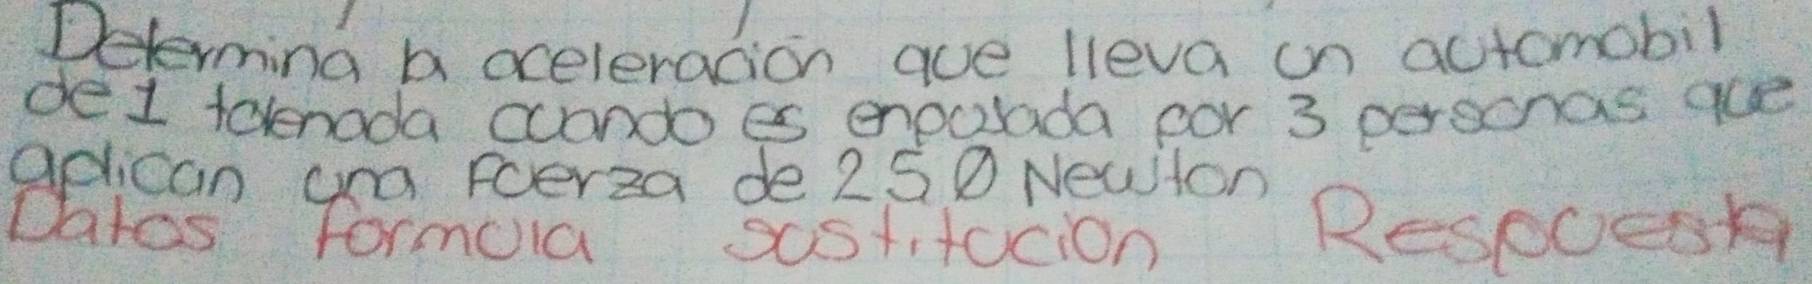 Determina la aceleración que lleva un automobil
de 1 tolenada cuando es enpujada por 3 personas que
aplican una fuerza de 250 Newton
Datos formula sustitucion Respuesta